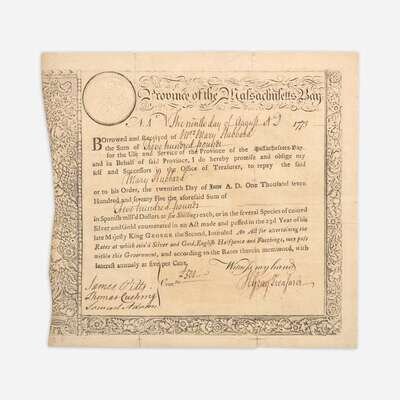 Province of the Massachusetts-Bay
The ninth day of August A.D. 1773
BORROWED and Received of Mrs Mary Hubbard
the Sum of Three hundred pounds
for the Use and Service of the Province of the Massachusetts-Bay.
and in Behalf of said Province, I do hereby promise and oblige my
self and Successors in the Office of Treasurer, to repay the said
Mary Hubbard
or to his Order, the twentieth Day of JUNE A. D. One Thousand seven
Hundred and seventy five the aforesaid Sum of
Three hundred pounds
in Spanish mill'd Dollars at six Shillings each, or in the several Species of coined
Silver and Gold enumerated in an Act made and passed in the 23d Year of his
late Majesty King GEORGE the Second, Intituled An Act for ascertaining the
Rates at which coin'd Silver and Gold, English Halfpence and Farthings, may pass
within this Government, and according to the Rates therein mentioned, with
Interest annually at five per Cent.
Witness my hand
James Pitts
Thomas Cushing
Samuel Adams
HGray Treasurer